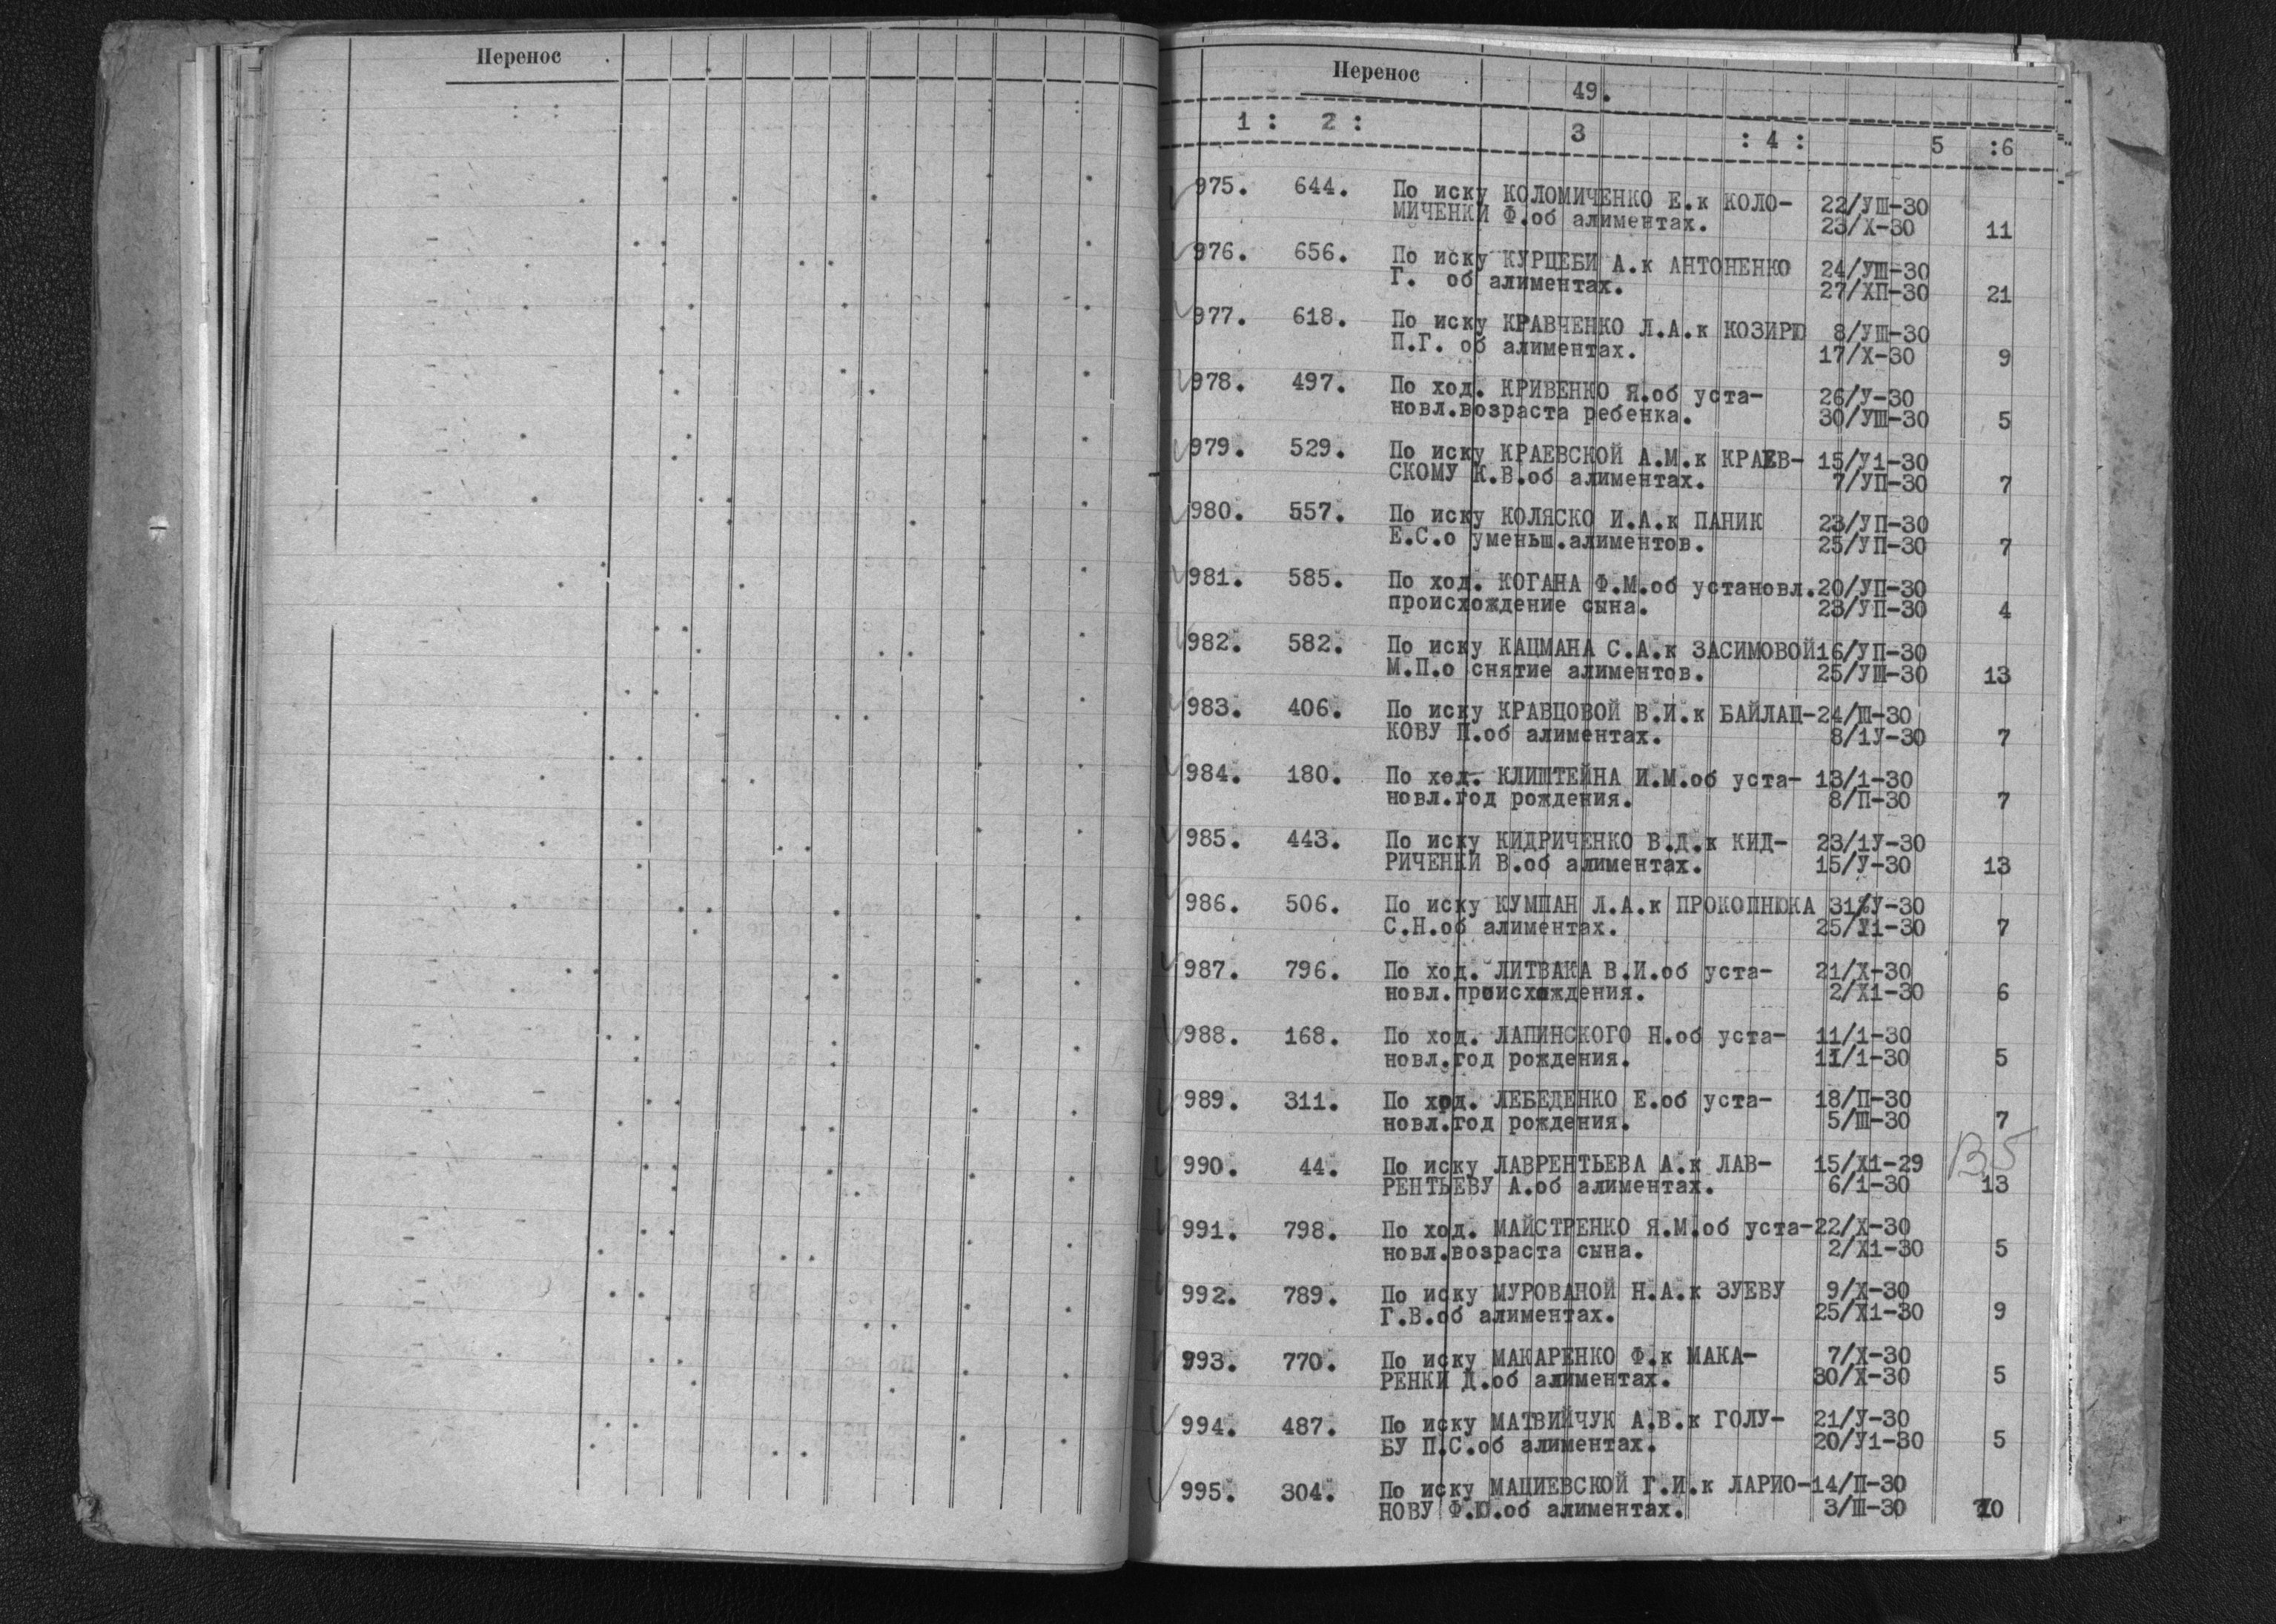 Перенос
Перенос
49.
1 : 2 : 3 : 4 : 5 :6
975. 644. По иску КОЛОМИЧЕНКО Е.к КОЛО- 22/УШ-30
МИЧЕНКИ Ф.об алиментах. 23/Х-30 11
976. 656. По иску КУРЦЕБИ А.к АНТОНЕНКО 24/УШ-30
Г. об алиментах. 27/ХП-30 21
977. 618. По иску КРАВЧЕНКО Л.А.к КОЗИРЮ 8/УШ-30
П.Г. об алиментах. 17/Х-30 9
978. 497. По ход. КРИВЕНКО Я.об уста- 26/У-30
новл.возраста ребенка. 30/УШ-30 5
979. 529. По иску КРАЕВСКОЙ А.М.к КРАЕВ- 15/У1-30
СКОМУ К.В.об алиментах. 7/УП-30 7
980. 557. По иску КОЛЯСКО И.А.к ПАНИК 23/УП-30
Е.С.о уменьш.алиментов. 25/УП-30 7
981. 585. По ход. КОГАНА Ф.М.об установл.20/УП-30
происхождение сына. 23/УП-30 4
982. 582. По иску КАЦМАНА С.А.к ЗАСИМОВОЙ16/УП-30
М.П.о снятие алиментов. 25/УШ-30 13
983. 406. По иску КРАВЦОВОЙ В.И.к БАЙЛАЦ-24/Ш-30
КОВУ П.об алиментах. 8/1У-30 7
984. 180. По ход. КЛИШТЕЙНА И.М.об уста- 13/1-30
новл.год рождения. 8/П-30 7
985. 443. По иску КИДРИЧЕНКО В.Д.к КИД- 23/1У-30
РИЧЕНКИ В.об алиментах. 15/У-30 13
986. 506. По иску КУМПАН Л.А.к ПРОКОПНЮКА 31/У-30
С.Н.об алиментах. 25/У1-30 7
987. 796. По ход. ЛИТВАКА В.И.об уста- 21/Х-30
новл.происхождения. 2/Х1-30 6
988. 168. По ход. ЛАПИНСКОГО Н.об уста- 11/1-30
новл.год рождения. 11/1-30 5
989. 311. По ход. ЛЕБЕДЕНКО Е.об уста- 18/П-30
новл.год рождения. 5/Ш-30 7
135
990. 44. По иску ЛАВРЕНТЬЕВА А.к ЛАВ- 15/Х1-29
РЕНТЬЕВУ А.об алиментах. 6/1-30 13
991. 798. По ход. МАЙСТРЕНКО Я.М.об уста-22/Х-30
новл.возраста сына. 2/Х1-30 5
992. 789. По иску МУРОВАНОЙ Н.А.к ЗУЕВУ 9/Х-30
Г.В.об алиментах. 25/Х1-30 9
993. 770. По иску МАКАРЕНКО Ф.к МАКА- 7/Х-30
РЕНКИ Д.об алиментах. 30/Х-30 5
994. 487. По иску МАТВИЙЧУК А.В.к ГОЛУ- 21/У-30
БУ П.С.об алиментах. 20/У1-30 5
995. 304. По иску МАЦИЕВСКОЙ Г.И.к ЛАРИО-14/П-30
НОВУ Ф.Ю.об алиментах. 3/Ш-30 10